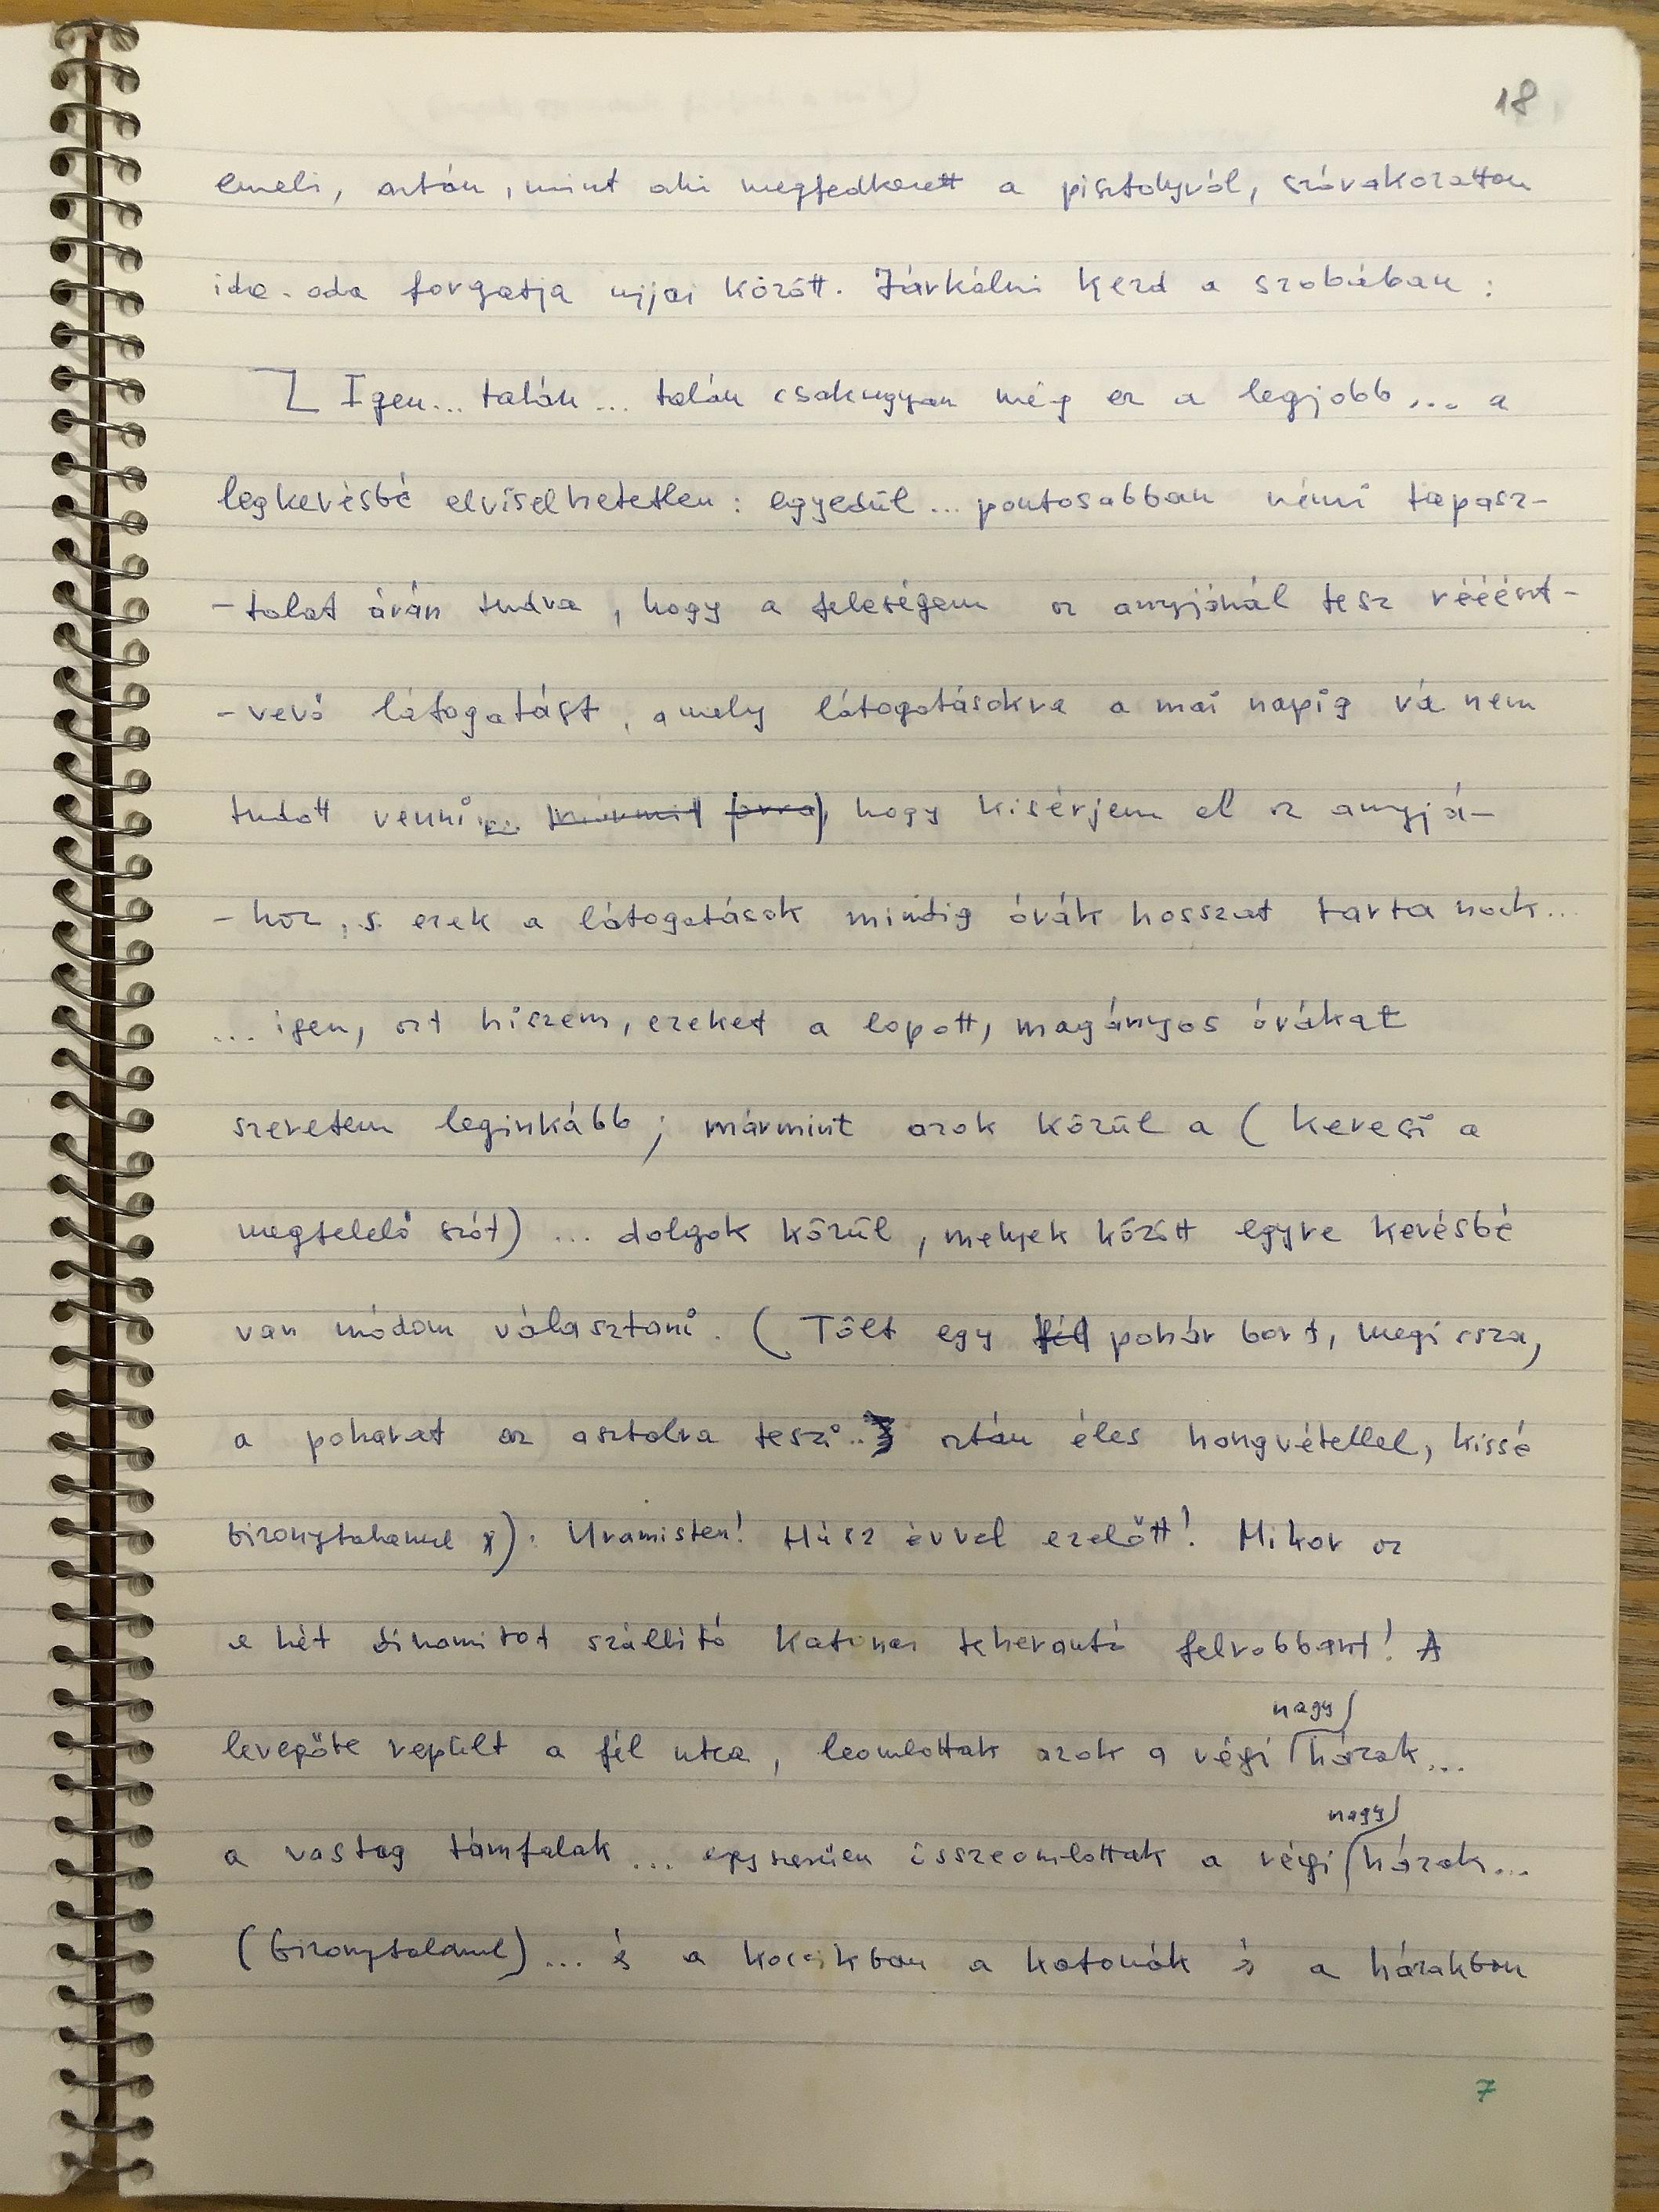 18
emeli, aztán, mint aki megfedkezett a pisztolyról, szórakozottan
ide-oda forgatja ujjai között. Járkálni kezd a szobában:
Igen... talán... talán csakugyan még ez a legjobb... a
legkevésbé elviselhetetlen: egyedül... pontosabban némi tapasz-
-talat árán tudva, hogy a feleségem az anyjánál tesz rééészt-
-vevő látogatást, amely látogatásokra a mai napig rá nem
tudott venni, hogy kisérjem el az anyjá-
-hoz, s ezek a látogatások mindig órák hosszat tartanak...
... igen, azt hiszem, ezeket a lopott, magányos órákat
szeretem leginkább; mármint azok körül a (keresi a
megfelelő szót) ... dolgok körül, melyek között egyre kevésbé
van módom választani. (Tölt egy fél pohár bort, megissza,
a poharat az asztalra teszi... aztán éles hangvétellel, kissé
bizonytalanul): Uramisten! Húsz évvel ezelőtt! Mikor az
a hét dinamitot szállító katonai teherautó felrobbant! A
levegőbe repült a fél utca, leomlottak azok a régi nagy házak...
a vastag támfalak... egyszerűen összeomlottak a régi nagy házak...
(bizonytalanul)... és a kocsikban a katonák és a házakban
7